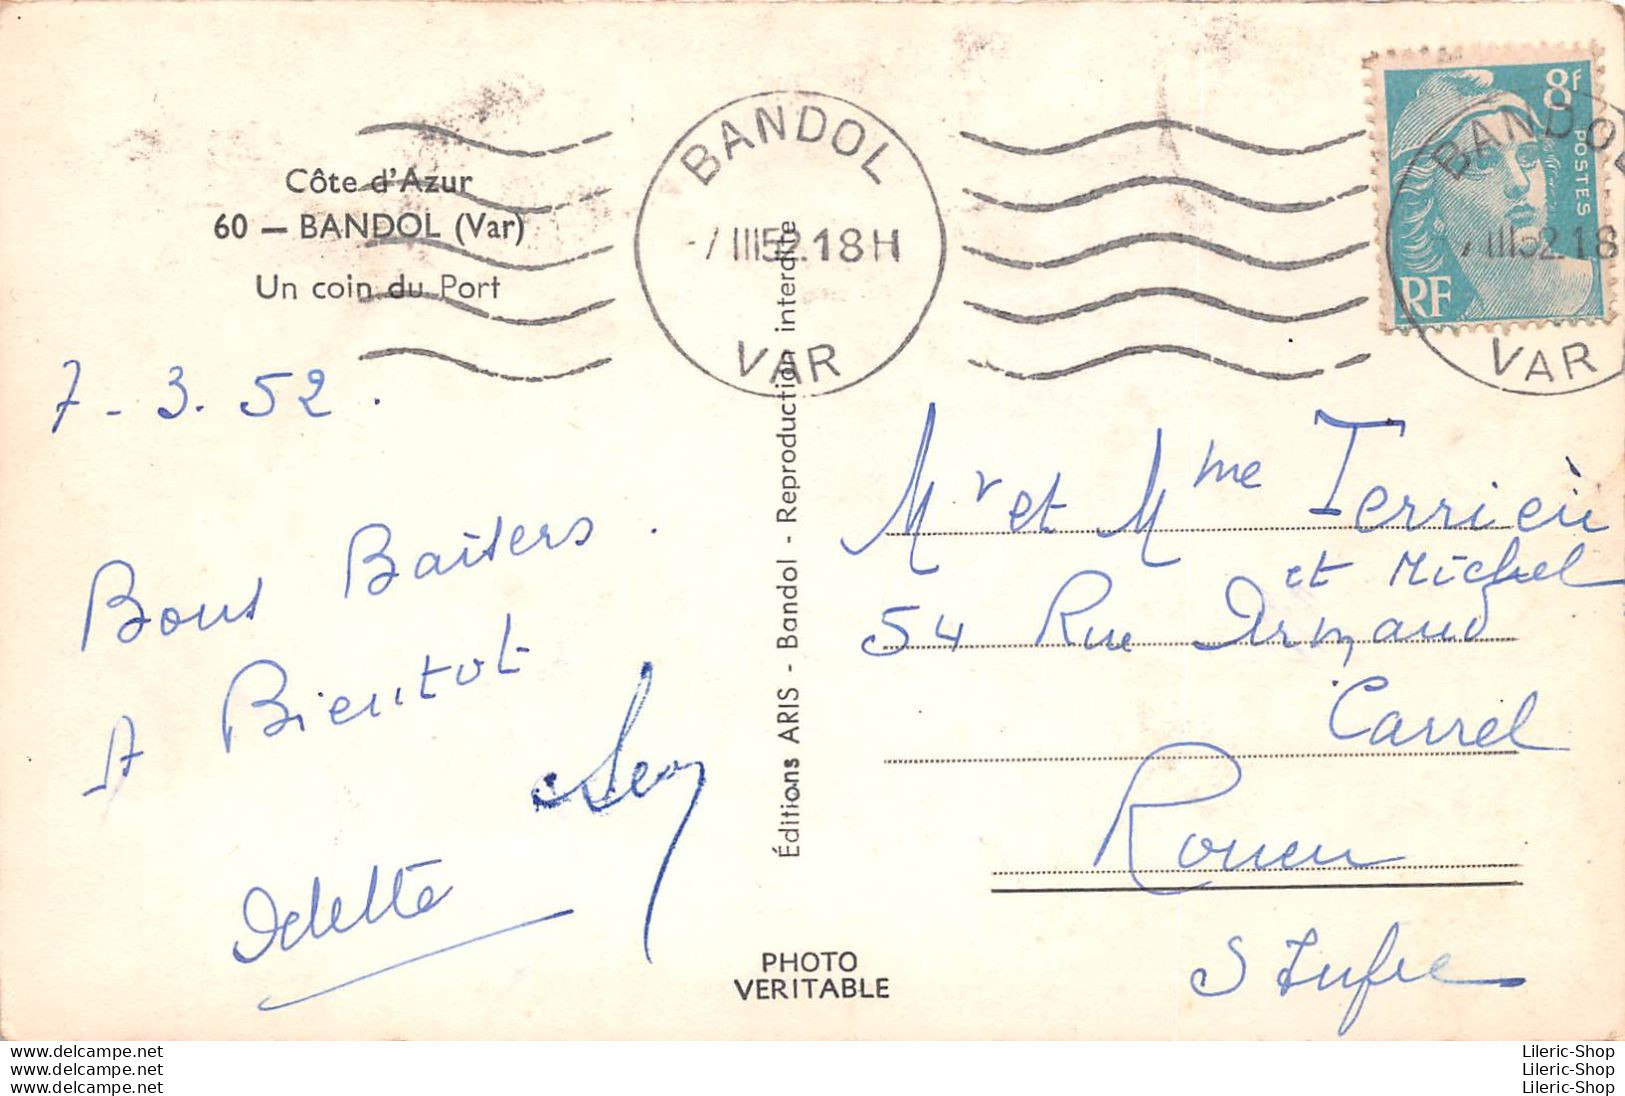 Côte d'Azur
60 — BANDOL (Var)
Un coin du Port
BANDOL
-7 III 52.18H
VAR
8F
POSTES
RF
BANDOL
-7 III 52.18
VAR
7-3.52.
Bons Baisers.
A Bientot
Odette
Éditions ARIS - Bandol - Reproduction interdite
PHOTO
VERITABLE
Mr et Mme Terrien
et Michel
54 Rue Armand
Carrel
Rouen
S Infre
www.delcampe.net
www.delcampe.net
www.delcampe.net
Lileric-Shop
Lileric-Shop
Lileric-Shop